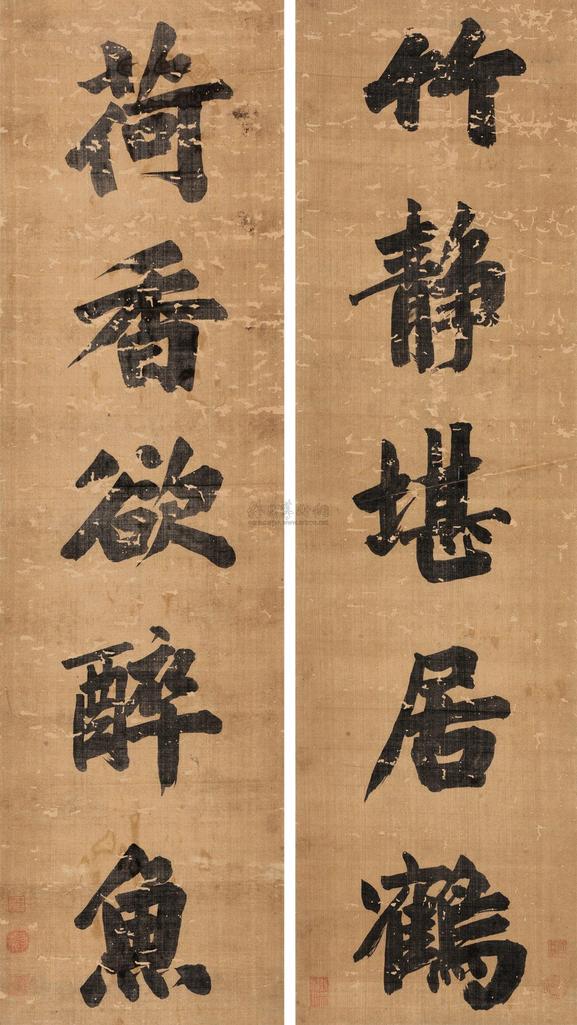 竹静堪居鶴
荷香欲醉魚